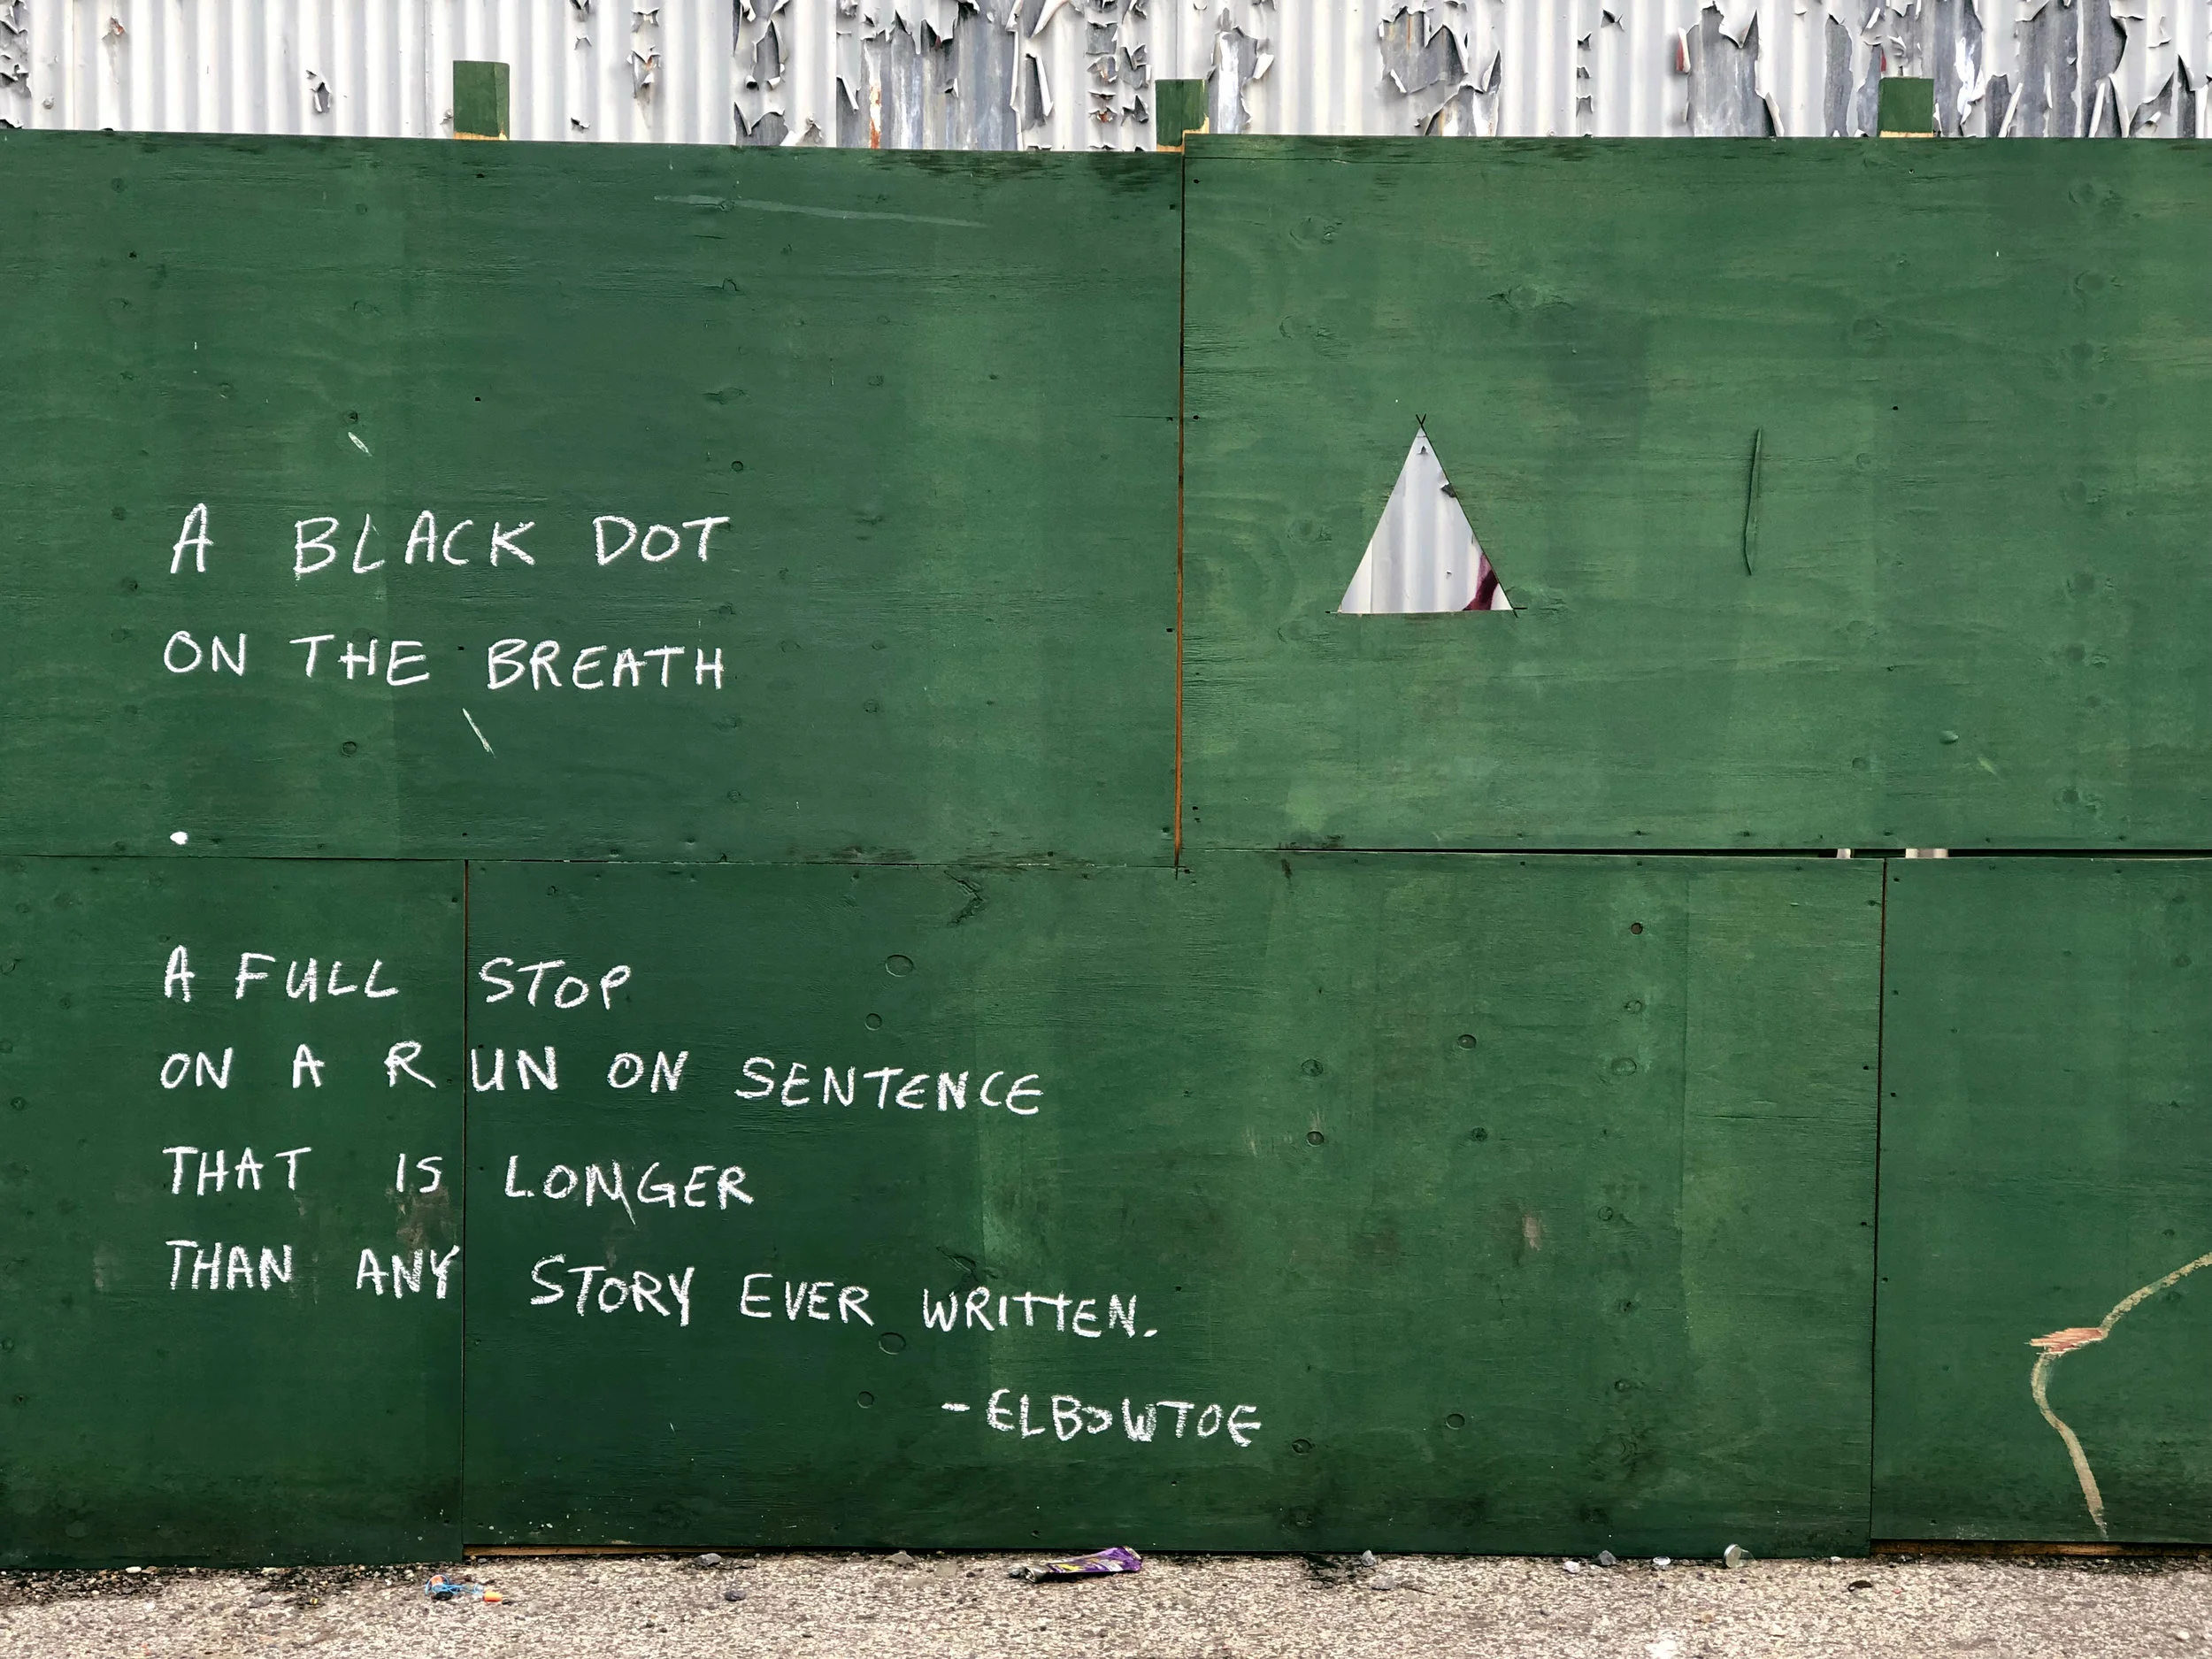 A BLACK DOT
ON THE BREATH
.
A FULL STOP
ON A RUN ON SENTENCE
THAT IS LONGER
THAN ANY STORY EVER WRITTEN.
-ELBOWTOE